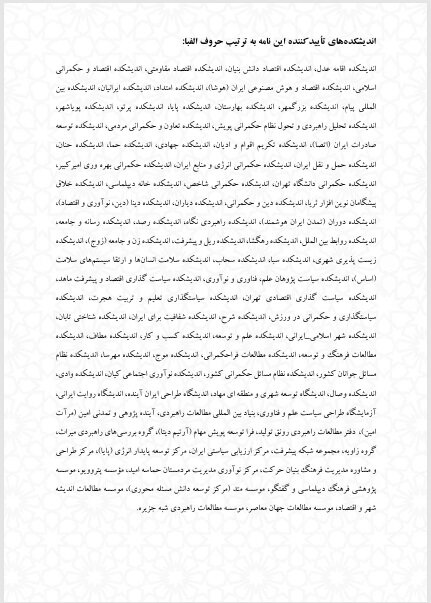 اندیشکده‌های تأییدکننده این نامه به ترتیب حروف الفبا:
اندیشکده اقامه عدل، اندیشکده اقتصاد دانش بنیان، اندیشکده اقتصاد مقاومتی، اندیشکده اقتصاد و حکمرانی
اسلامی، اندیشکده اقتصاد و هوش مصنوعی ایران (هوشا)، اندیشکده امتداد، اندیشکده ایرانیان، اندیشکده بین
المللی پیام، اندیشکده بزرگمهر، اندیشکده بهارستان، اندیشکده پایا، اندیشکده پرتو، اندیشکده پویاشهر،
اندیشکده تحلیل راهبردی و تحول نظام حکمرانی پویش، اندیشکده تعاون و حکمرانی مردمی، اندیشکده توسعه
صادرات ایران (اتصا)، اندیشکده تکریم اقوام و ادیان، اندیشکده جهادی، اندیشکده حما، اندیشکده حنان،
اندیشکده حمل و نقل ایران، اندیشکده حکمرانی انرژی و منابع ایران، اندیشکده حکمرانی بهره وری امیرکبیر،
اندیشکده حکمرانی دانشگاه تهران، اندیشکده حکمرانی شاخص، اندیشکده خانه دیپلماسی، اندیشکده خلاق
پیشگامان نوین افزار ثریا، اندیشکده دین و حکمرانی، اندیشکده دیاران، اندیشکده دینا (دین، نوآوری و اقتصاد)،
اندیشکده دوران (تمدن ایران هوشمند)، اندیشکده راهبردی نگاه، اندیشکده رصد، اندیشکده رسانه و جامعه،
اندیشکده روابط بین الملل، اندیشکده رهگشا، اندیشکده ریل و پیشرفت، اندیشکده زن و جامعه (زوج)، اندیشکده
زیست پذیری شهری، اندیشکده سبا، اندیشکده سحاب، اندیشکده سلامت انسان‌ها و ارتقا سیستم‌های سلامت
(اساس)، اندیشکده سیاست پژوهان علم، فناوری و نوآوری، اندیشکده سیاست گذاری اقتصاد و پیشرفت ماهد،
اندیشکده سیاست گذاری اقتصادی تهران، اندیشکده سیاستگذاری تعلیم و تربیت هجرت، اندیشکده
سیاستگذاری و حکمرانی در ورزش، اندیشکده شرح، اندیشکده شفافیت برای ایران، اندیشکده شناختی تابان،
اندیشکده شهر اسلامی_ایرانی، اندیشکده علم و توسعه، اندیشکده کسب و کار، اندیشکده مطاف، اندیشکده
مطالعات فرهنگ و توسعه، اندیشکده مطالعات فراحکمرانی، اندیشکده موج، اندیشکده مهرسا، اندیشکده نظام
مسائل جوانان کشور، اندیشکده نظام مسائل حکمرانی کشور، اندیشکده نوآوری اجتماعی کیان، اندیشکده وادی،
اندیشکده وصال، اندیشگاه توسعه شهری و منطقه ای مهاد، اندیشگاه طراحی ایران آینده، اندیشگاه روایت ایرانی،
آزمایشگاه طراحی سیاست علم و فناوری، بنیاد بین المللی مطالعات راهبردی، آینده پژوهی و تمدنی امین (مرآت
امین)، دفتر مطالعات راهبردی رونق تولید، فرا توسعه پویش مهام (آرتیم دیتا)، گروه بررسی‌های راهبردی میراث،
گروه زاویه، مجموعه شبکه پیشرفت، مرکز ارزیابی سیاستی ایران، مرکز توسعه پایدار انرژی (پایا)، مرکز طراحی
و مشاوره مدیریت فرهنگ بنیان حرکت، مرکز نوآوری مدیریت مردمستان حماسه امید، مؤسسه پتروویو، موسسه
پژوهشی فرهنگ دیپلماسی و گفتگو، موسسه متد (مرکز توسعه دانش مسئله محوری)، موسسه مطالعات اندیشه
شهر و اقتصاد، موسسه مطالعات جهان معاصر، موسسه مطالعات راهبردی شبه جزیره.